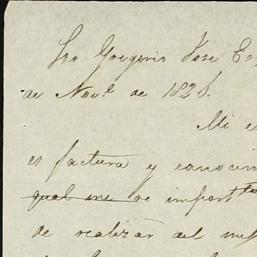 Sor Gregorio Jose
de Novl de 1828.
Mi
es factura y conocim
qual me de import
de realizar del mej